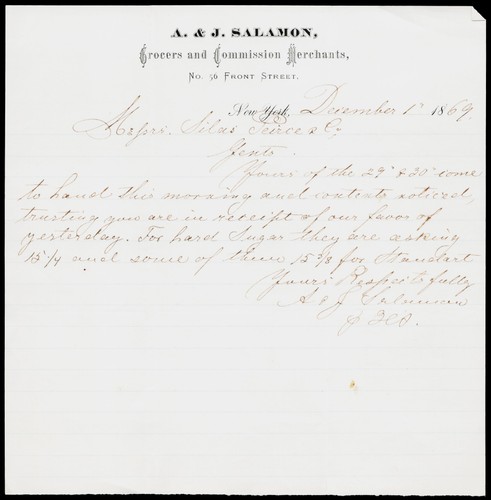 A. & J. SALAMON,
Grocers and Commission Merchants,
No. 56 Front Street.
New York, December 1st 1869
Messrs. Silas Peirce & Co
Gents.
Yours of the 29th & 30th come
to hand this morning and contents noticed,
trusting you are in receipt of our favor of
yesterday. For hard Sugar they are asking
15 1/4 and some of them 15 3/8 for Standart
Yours Respectfully
A & J Salamon